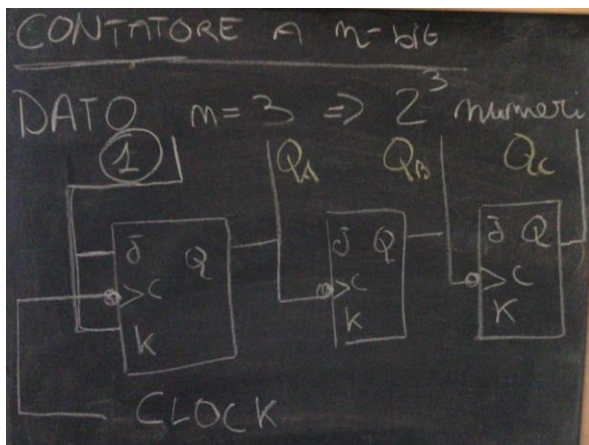 CONTATORE A n-bit
DATO n=3 => 2³ numeri
1 Q_A Q_B Q_C
J Q J Q J Q
C C C
K K K
CLOCK